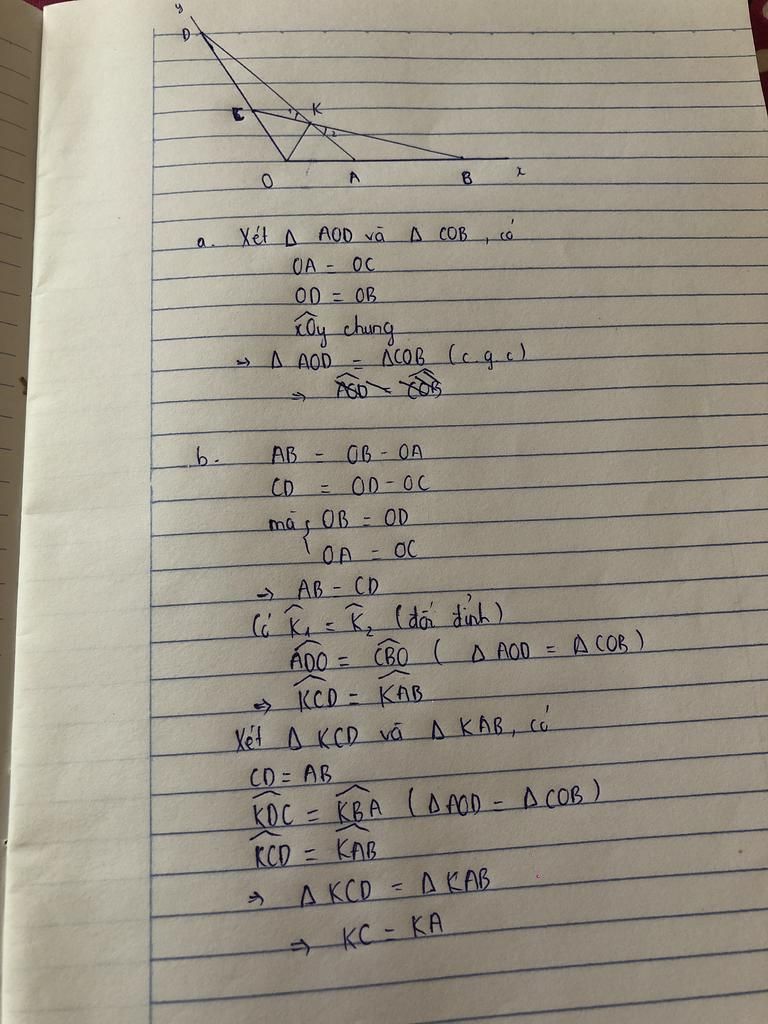 y
D
C
K
1
2
O
A
B
x
a. Xét Δ AOD và Δ COB, có
OA = OC
OD = OB
x̂Oy chung
⇒ Δ AOD = ΔCOB (c.g.c)
⇒ ÂOD = ĈOB
b. AB = OB - OA
CD = OD - OC
mà { OB = OD
OA = OC
⇒ AB = CD
Có K̂₁ = K̂₂ (đối đỉnh)
ÂDO = ĈBO ( Δ AOD = Δ COB)
⇒ K̂CD = K̂AB
Xét Δ KCD và Δ KAB, có
CD = AB
K̂DC = K̂BA (ΔAOD = Δ COB)
K̂CD = K̂AB
⇒ Δ KCD = Δ KAB
⇒ KC = KA